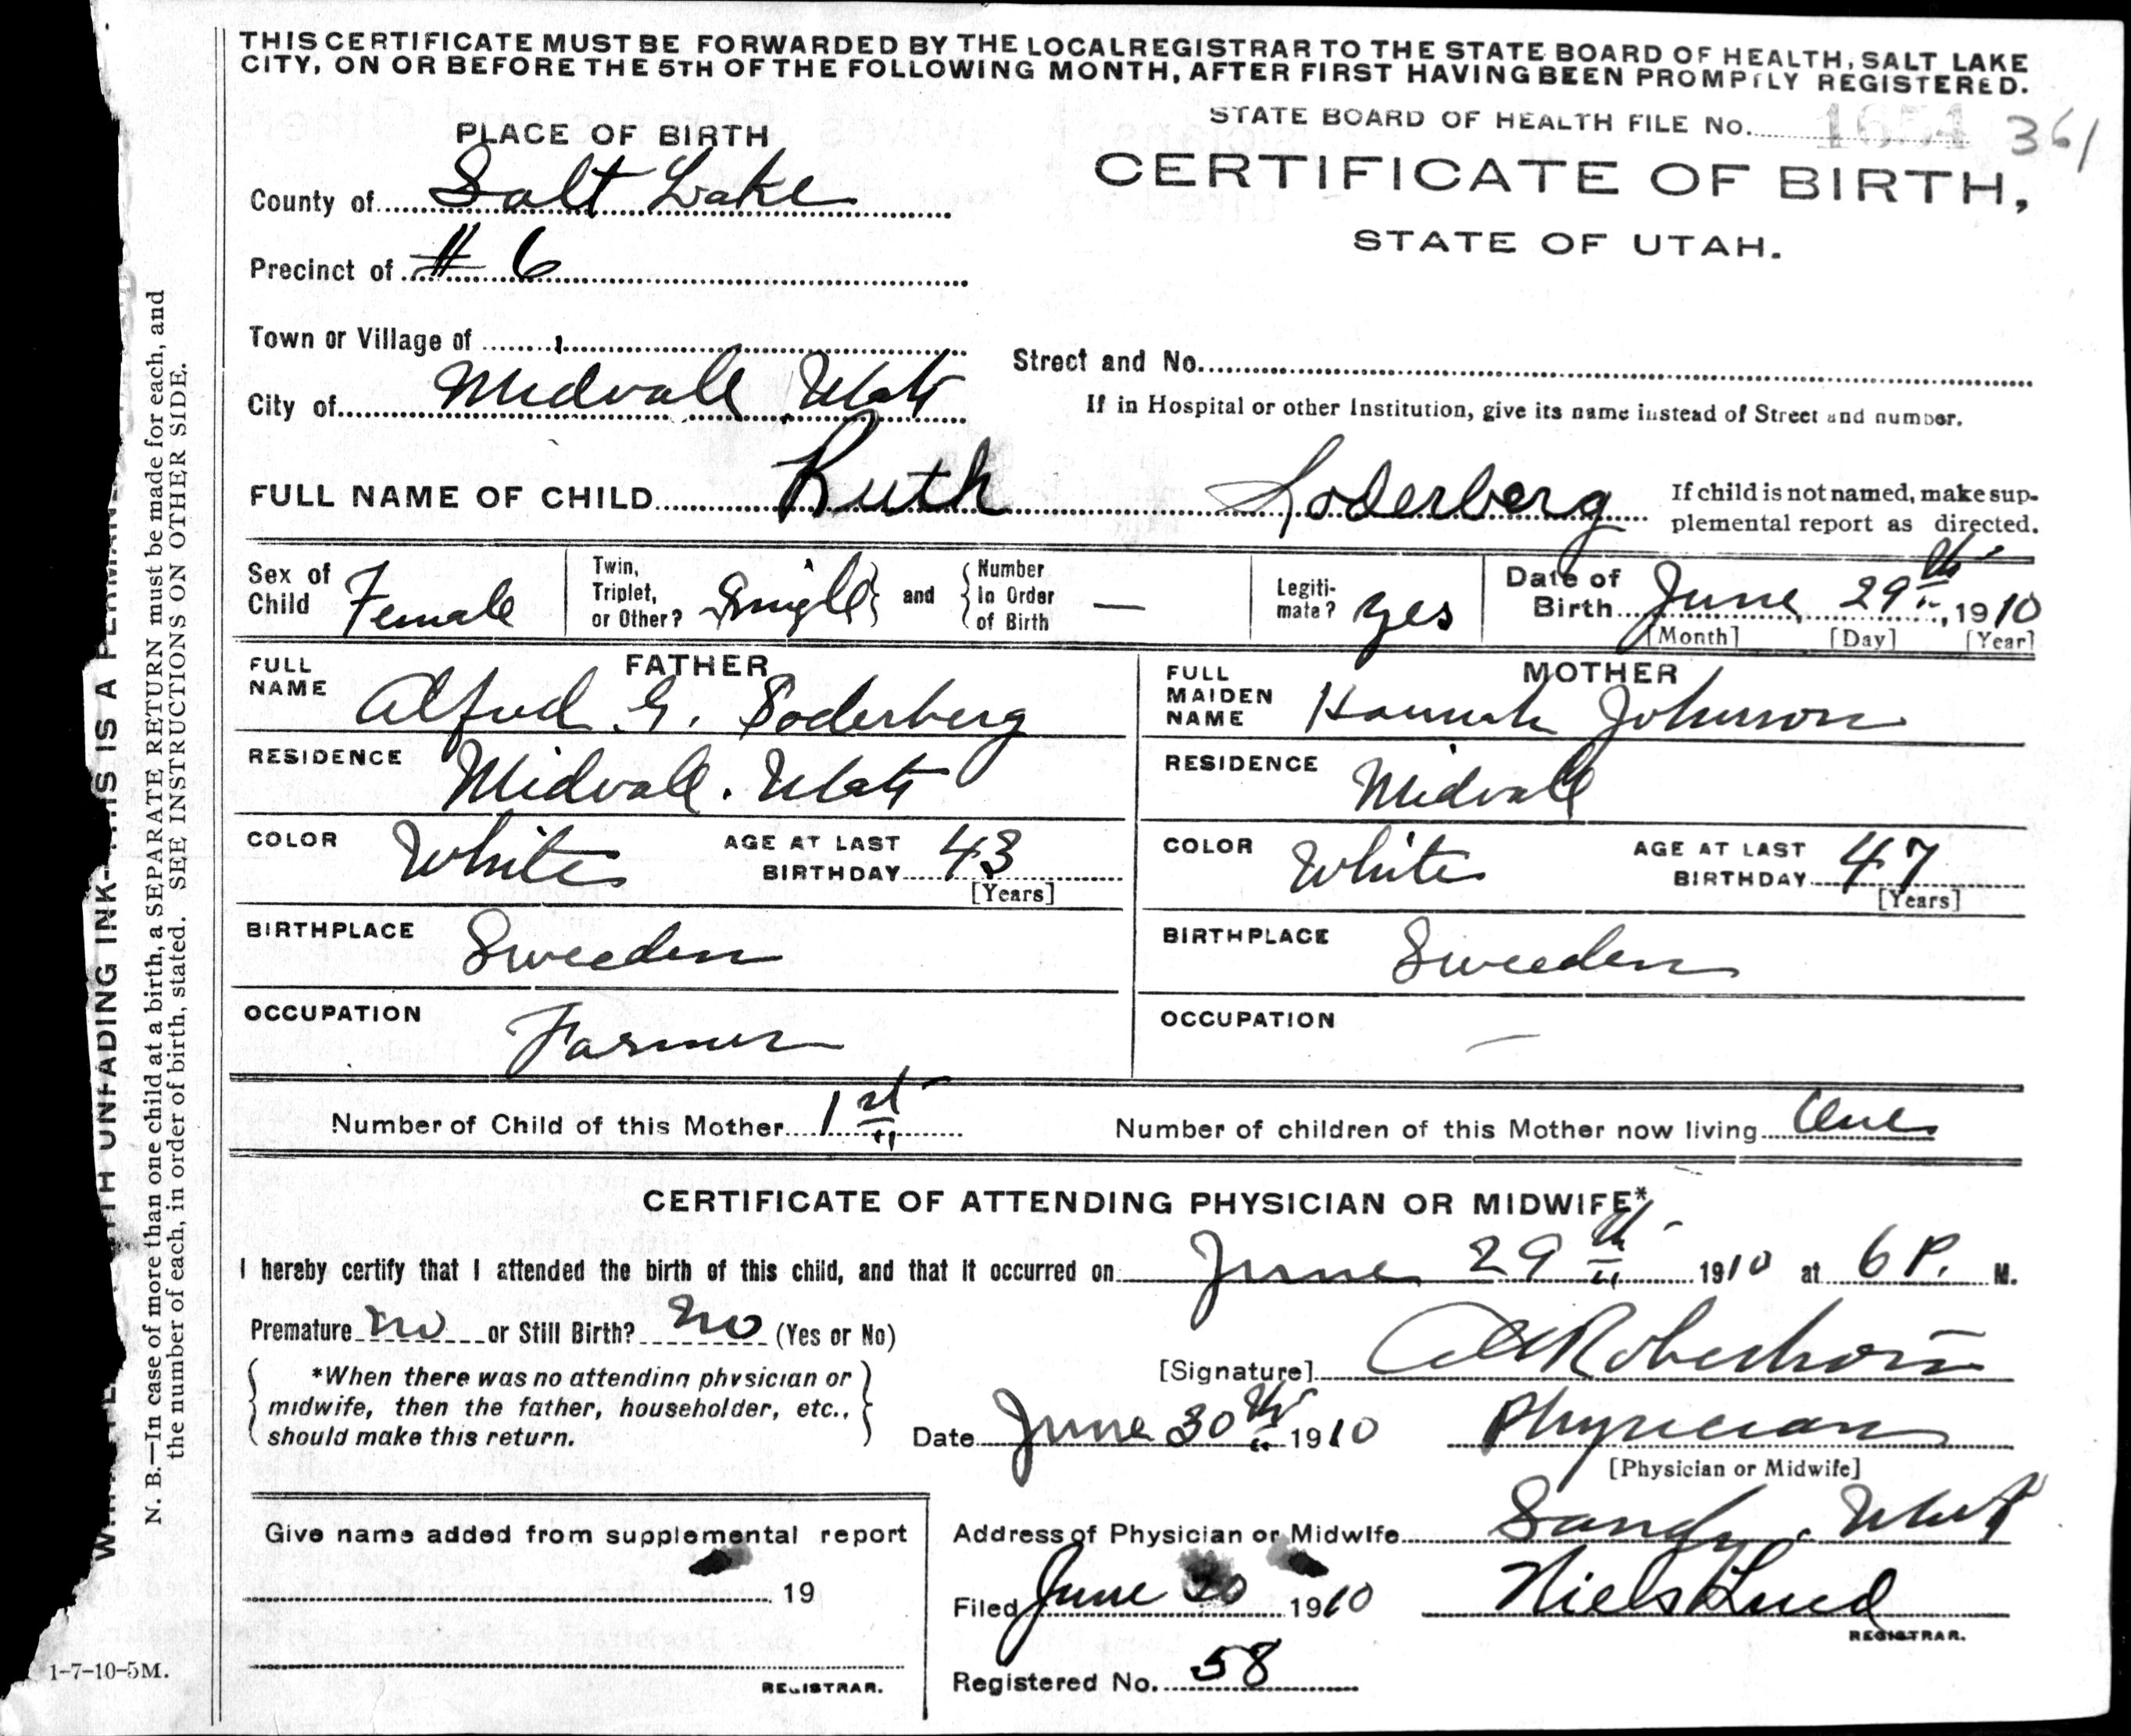 THIS CERTIFICATE MUST BE FORWARDED BY THE LOCAL REGISTRAR TO THE STATE BOARD OF HEALTH, SALT LAKE
CITY, ON OR BEFORE THE 5TH OF THE FOLLOWING MONTH, AFTER FIRST HAVING BEEN PROMPTLY REGISTERED.
STATE BOARD OF HEALTH FILE No. 361
PLACE OF BIRTH
CERTIFICATE OF BIRTH,
STATE OF UTAH.
County of Salt Lake
Precinct of # 6
Town or Village of
Street and No.
City of Midvale Utah
If in Hospital or other Institution, give its name instead of Street and number.
FULL NAME OF CHILD Ruth Soderberg
If child is not named, make sup-
plemental report as directed.
Sex of Child Female
Twin, Triplet, or Other? Single and Number In Order of Birth —
Legiti-mate? yes
Date of Birth June 29th, 1910
[Month] [Day] [Year]
FATHER
FULL NAME Alfred G. Soderberg
RESIDENCE Midvale. Utah
COLOR White AGE AT LAST BIRTHDAY 43
[Years]
BIRTHPLACE Sweeden
OCCUPATION Farmer
MOTHER
FULL MAIDEN NAME Hannah Johnson
RESIDENCE Midvale
COLOR White AGE AT LAST BIRTHDAY 47
[Years]
BIRTHPLACE Sweeden
OCCUPATION —
Number of Child of this Mother 1st
Number of children of this Mother now living One
CERTIFICATE OF ATTENDING PHYSICIAN OR MIDWIFE*
I hereby certify that I attended the birth of this child, and that it occurred on June 29th 1910 at 6 P. M.
Premature no or Still Birth? no (Yes or No)
*When there was no attending physician or
midwife, then the father, householder, etc.,
should make this return.
[Signature] Robertson
Date June 30th 1910 Physician
[Physician or Midwife]
Give name added from supplemental report
19
REGISTRAR.
Address of Physician or Midwife Sandy. Utah
Filed June 30 1910 Niels Lind
REGISTRAR.
Registered No. 58
1-7-10-5M.
UNFADING INK- THIS IS A
N. B.—In case of more than one child at a birth, a SEPARATE RETURN must be made for each, and
the number of each, in order of birth, stated. SEE INSTRUCTIONS ON OTHER SIDE.